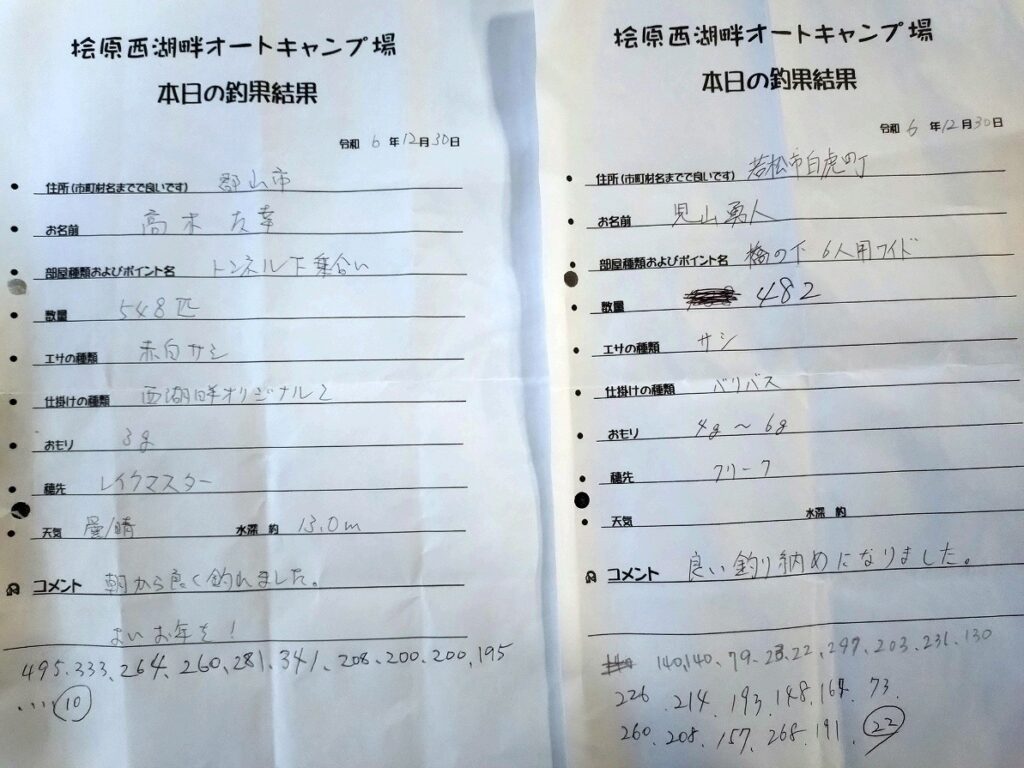 桧原西湖畔オートキャンプ場
本日の釣果結果
令和 6 年 12月 30日
住所(市町村名まてで良いです) 郡山市
お名前 高木 友幸
部屋種類およびポイント名 トンネル下乗合い
数量 548匹
エサの種類 赤白サシ
仕掛けの種類 西湖畔オリジナル2
おもり 3g
穂先 レイクマスター
天気 曇/晴 水深 約 13.0m
コメント 朝から良く釣れました。
よいお年を!
495.333、264、260、281、341、208、200、200、195
・・・・・⑩
桧原西湖畔オートキャンプ場
本日の釣果結果
令和 6 年12月30日
住所(市町村名まてで良いです) 若松市白虎町
お名前 児山勇人
部屋種類およびポイント名 橋の下 6人用ワイド
数量 482
エサの種類 サシ
仕掛けの種類 バリバス
おもり 4g～6g
穂先 フリーク
天気 水深 約
コメント 良い釣り納めになりました。
140,140、79、22、297、203、231、130
226、214、193、148、164、73、
260、208、157、268、191、㉒